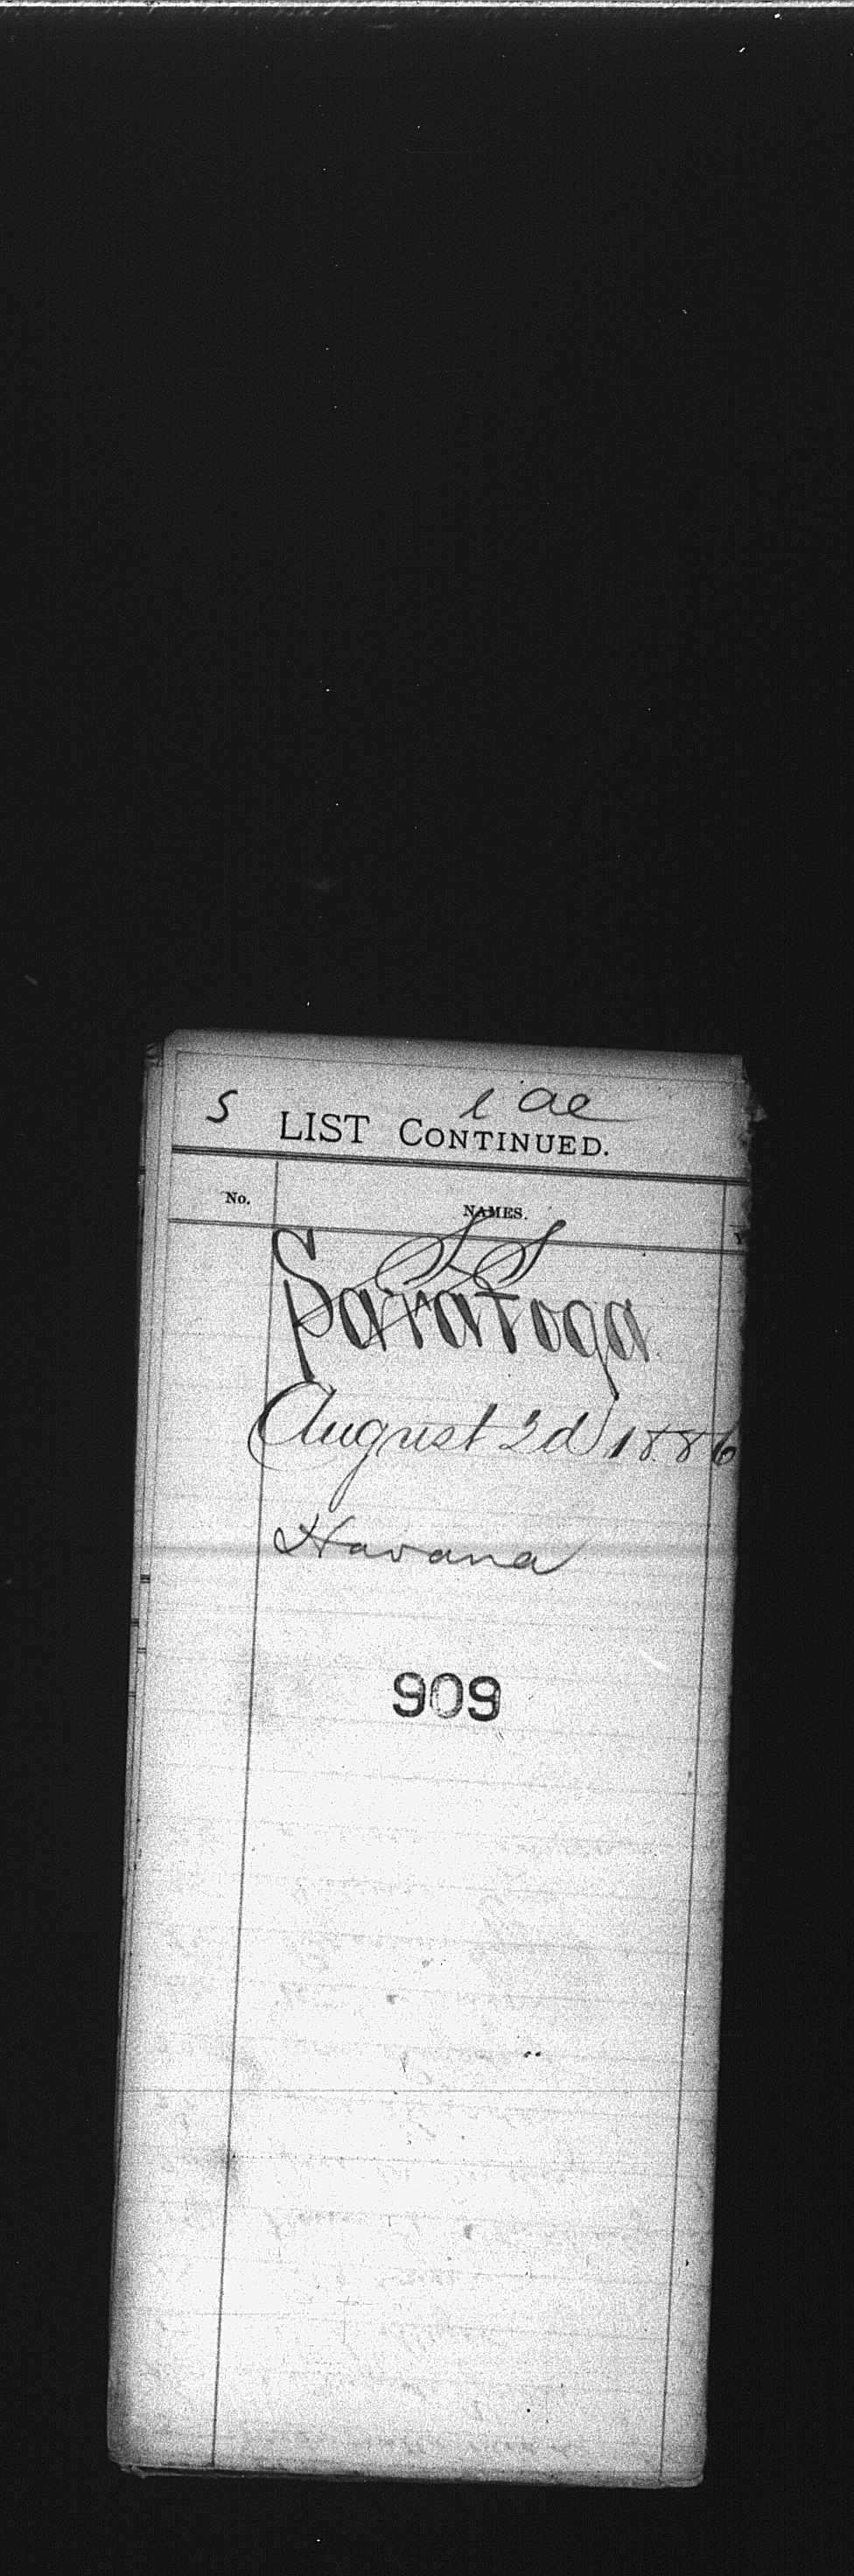 S
LIST CONTINUED.
No. NAMES.
S S
Saratoga
August 2d 1886
Havana
909